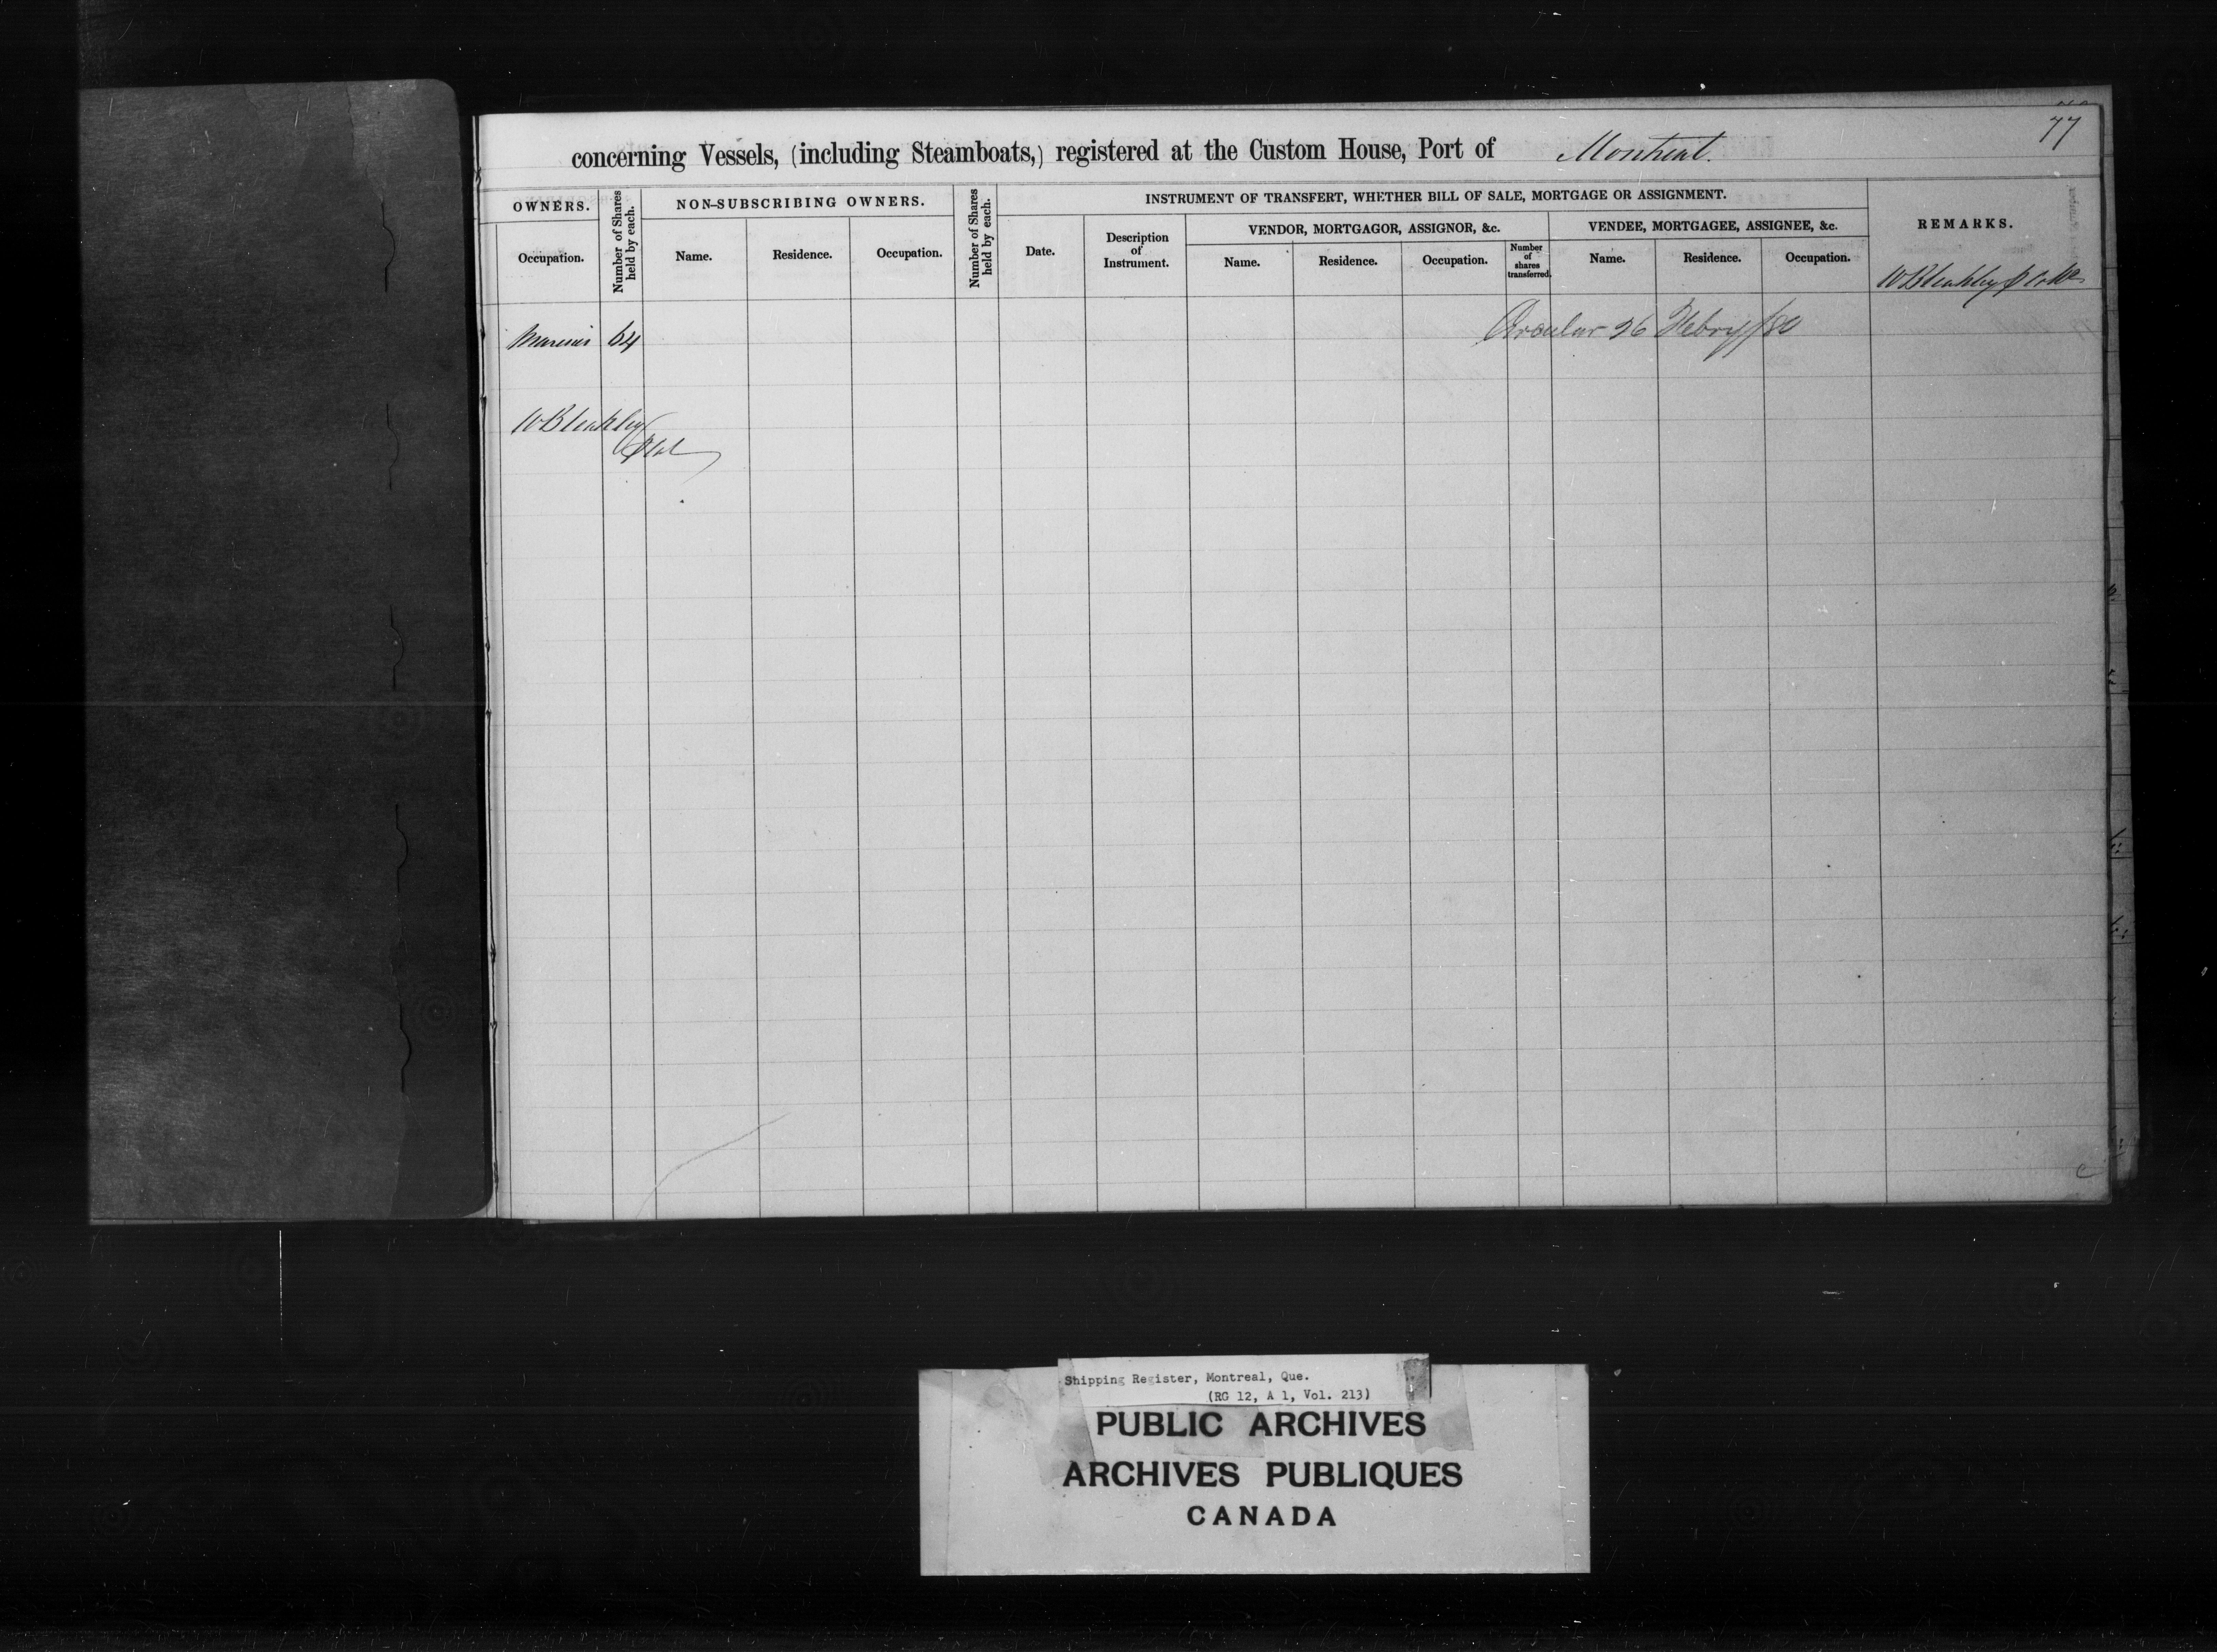 77
concerning Vessels, (including Steamboats,) registered at the Custom House, Port of Montreal.
OWNERS.
Number of Shares held by each.
NON-SUBSCRIBING OWNERS.
Number of Shares held by each.
INSTRUMENT OF TRANSFERT, WHETHER BILL OF SALE, MORTGAGE OR ASSIGNMENT.
REMARKS.
VENDOR, MORTGAGOR, ASSIGNOR, &c.
VENDEE, MORTGAGEE, ASSIGNEE, &c.
Occupation.
Name.
Residence.
Occupation.
Date.
Description
of
Instrument.
Name.
Residence.
Occupation.
Number
of
shares
transferred.
Name.
Residence.
Occupation.
W Bleakley
Mariner 64
Circular 26 Febry/80
W Bleakley
Shipping Register, Montreal, Que.
(RG 12, A 1, Vol. 213)
PUBLIC ARCHIVES
ARCHIVES PUBLIQUES
CANADA